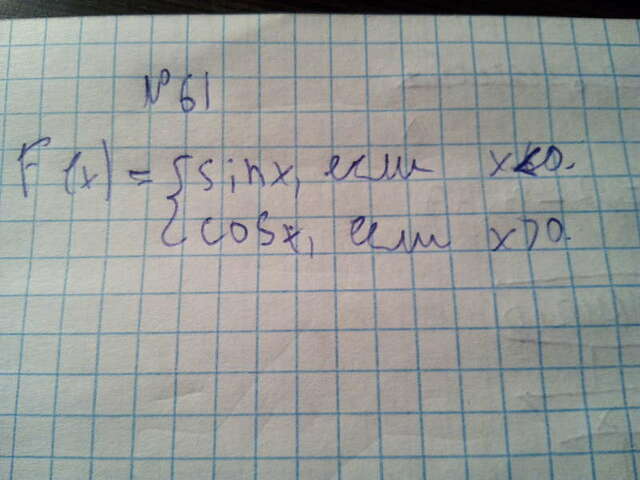 № 61
F(x) = { sin x, если x<0.
{ cos x, если x>0.